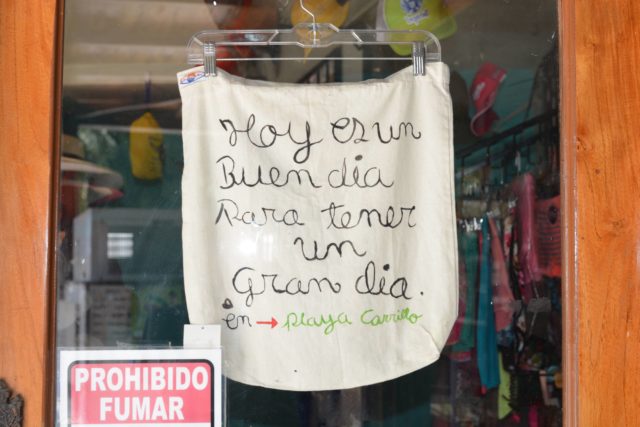 Hoy es un
Buen dia
Para tener
un
Gran dia.
en → Playa Carrillo
PROHIBIDO
FUMAR